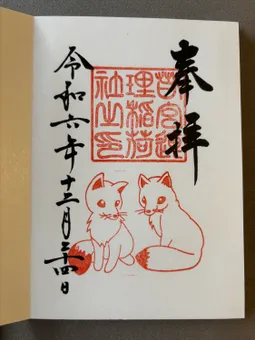 奉拝
理稲荷
社之印
令和六年十二月二四日